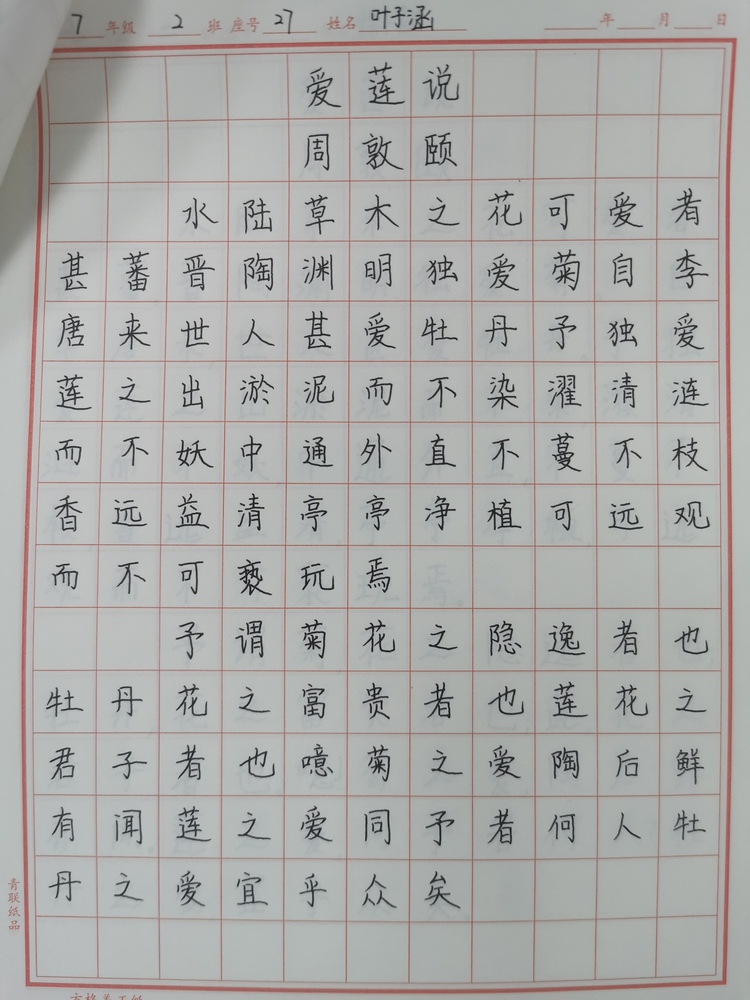 7年级 2班 座号27 姓名叶子涵 年 月 日
爱莲说
周敦颐
水陆草木之花可爱者
甚蕃晋陶渊明独爱菊自李
唐来世人甚爱牡丹予独爱
莲之出淤泥而不染濯清涟
而不妖中通外直不蔓不枝
香远益清亭亭净植可远观
而不可亵玩焉
予谓菊花之隐逸者也
牡丹花之富贵者也莲花之
君子者也噫菊之爱陶后鲜
有闻莲之爱同予者何人牡
丹之爱宜乎众矣
青联纸品